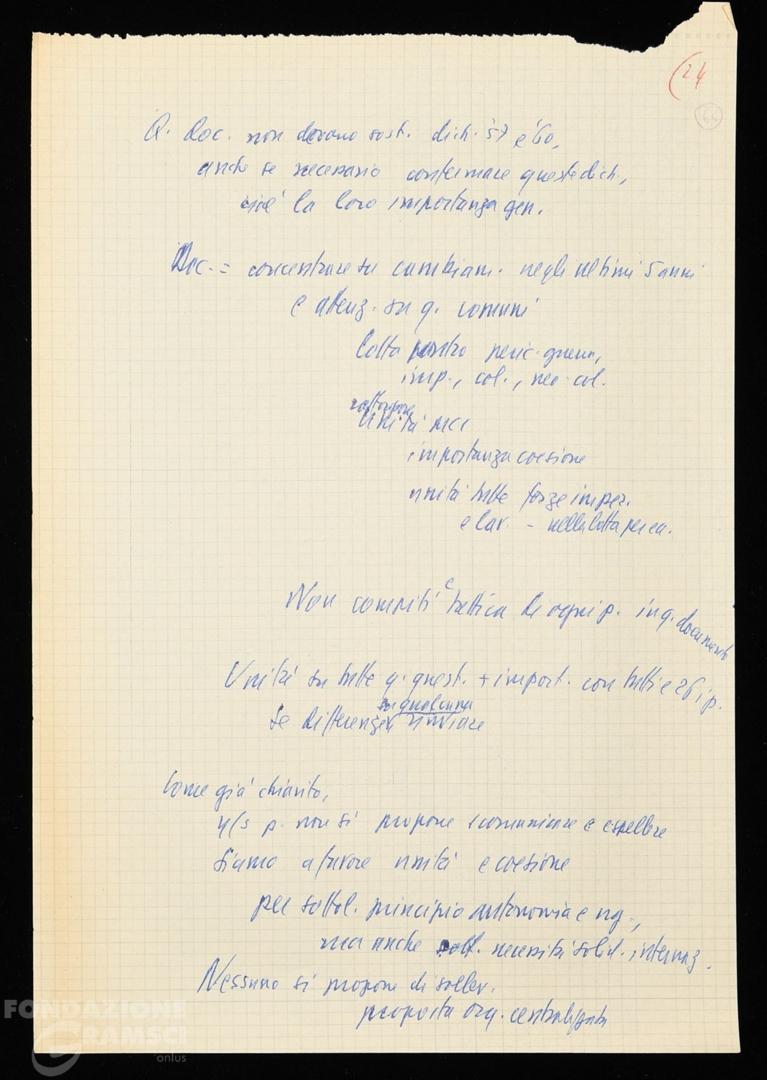 24
66
Q. Doc. non devono sost. dich. '57 e '60,
anche se necessario confermare queste dich.,
cioè la loro importanza gen.
Doc. = concentrare su cambiam. negli ultimi 5 anni
e attenz. su q. comuni
Lotta contro peric. guerra,
imp., col., neo-col.
rafforzare
Unità MCI
importanza coesione
unità tutte forze
e lav. - nella lotta
Non compiti e tattica di ogni p. in q. documento
Unità su tutte q. quest. + import. con tutti e 26 i p.
su qualcuna
Se differenze rinviare
Come già chiarito,
n/s p. non si propone scomunicare e espellere
Siamo a favore unità e coesione
per sottol. principio autonomia e ug.,
ma anche sott. necessità solid. internaz.
Nessuno si propone di sollev.
proposta org. centralizzata
FONDAZIONE
GRAMSCI
onlus